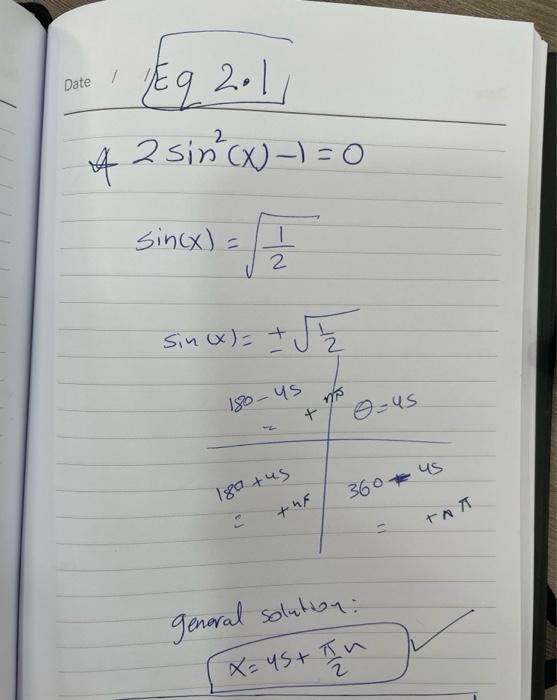 Date / /
Eq 2.1
2 sin²(x) - 1 = 0
sin(x) = √(1/2)
sin(x) = ± √(1/2)
180 - 45 + nπ
=
θ = 45
180 + 45
= + nπ
360 - 45
= + n π
general solution:
x = 45 + π/2 n